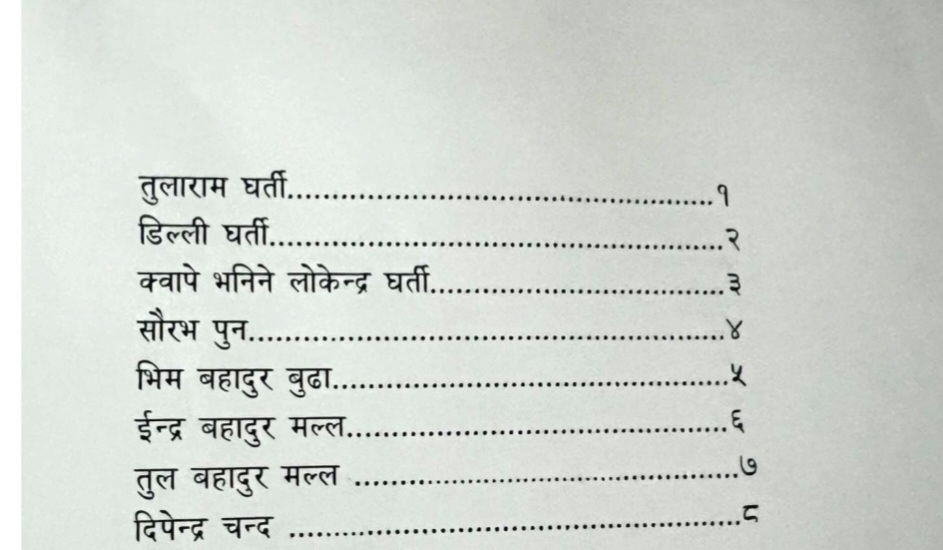 तुलाराम घर्ती................................................१
डिल्ली घर्ती..................................................२
क्वापे भनिने लोकेन्द्र घर्ती................................३
सौरभ पुन....................................................४
भिम बहादुर बुढा...........................................५
ईन्द्र बहादुर मल्ल.........................................६
तुल बहादुर मल्ल .........................................७
दिपेन्द्र चन्द ................................................८